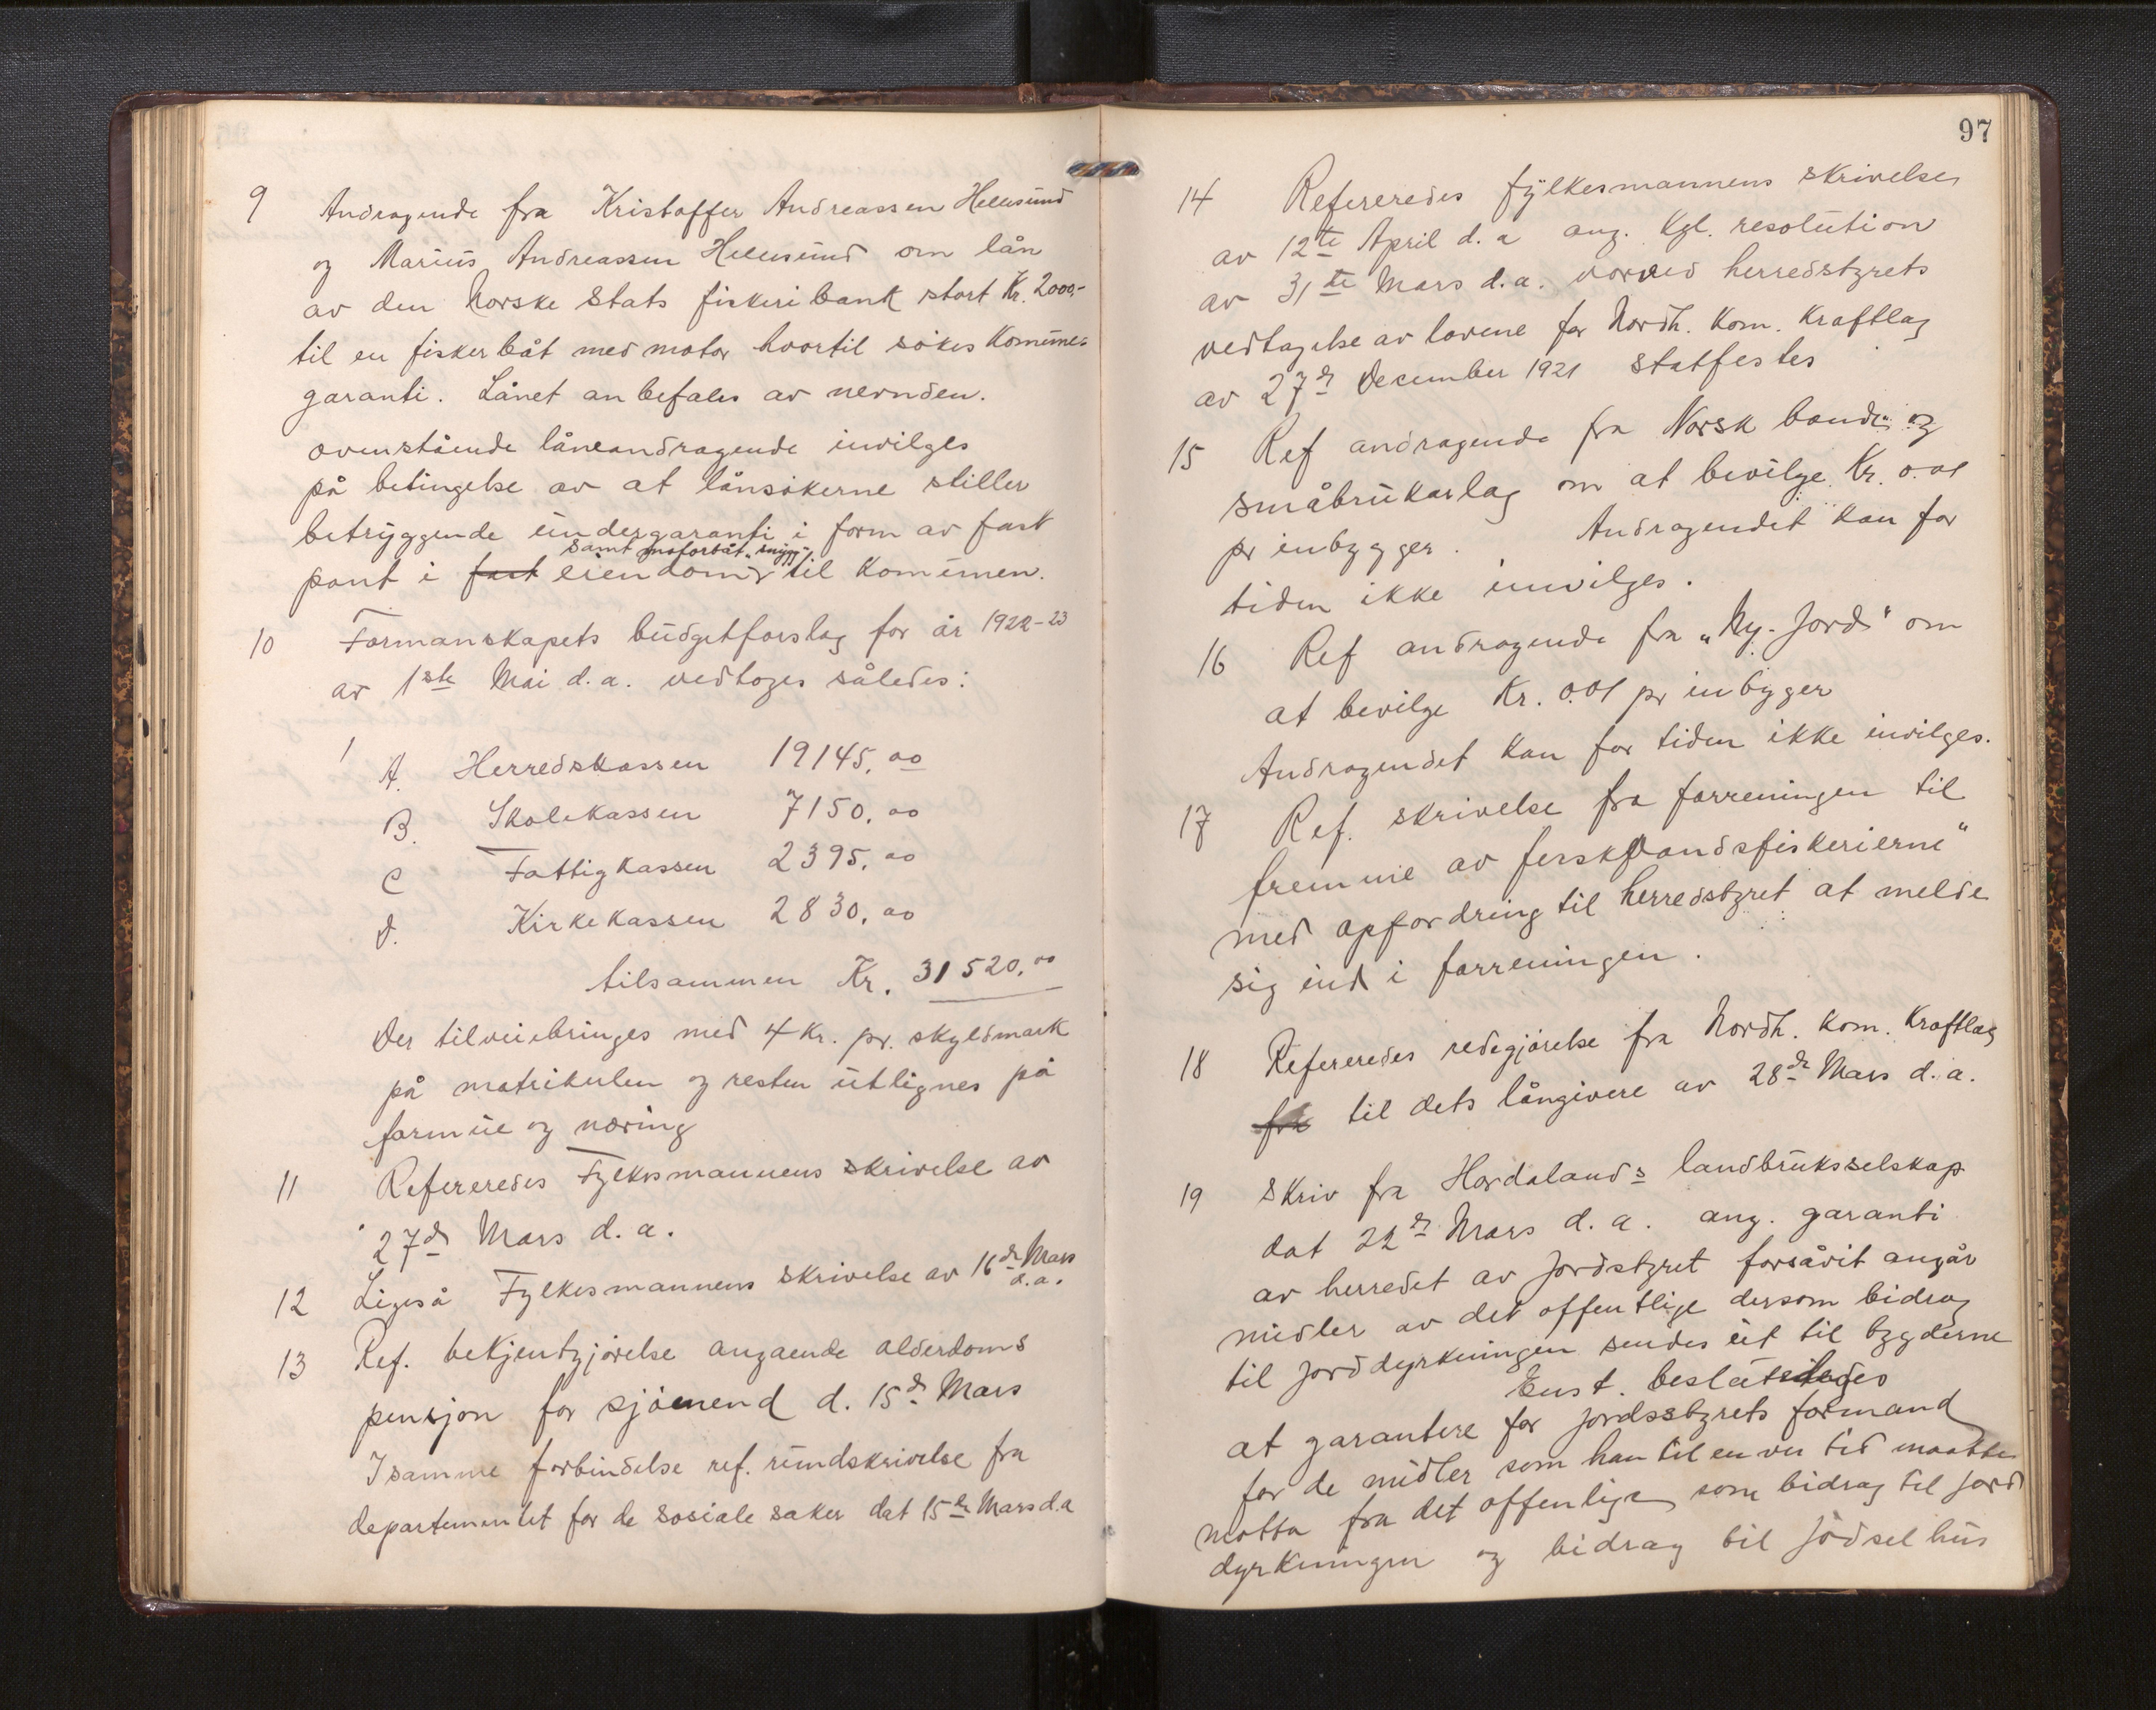 9 Andragende fra Kristoffer Andreassen Hellesund
og Marius Andreassen Hellesund om lån
av den Norske Stats fiskeribank stort Kr. 2000,-
til en fiskerbåt med motor hvortil søkes Komune-
garanti. Lånet anbefales av nevnden.
ovenstående låneandragende invilges
på betingelse av at lånsøkerne stiller
betryggende undergaranti i form av fast
samt motorbåt „snygg"
pant i fast eiendom til Komunen.
10 Formanskapets budgetforslag for år 1922-23
av 1ste Mai d.a. vedtoges således:
1 A. Herredskassen 19145,00
B. Skolekassen 7150,00
C Fattigkassen 2395,00
D. Kirkekassen 2830,00
tilsammen Kr. 31520,00
Der tilveiebringes med 4 Kr. pr. skyldmark
på matrikulen og resten utlignes på
formue og næring
11 Refereredes Fylkesmannens skrivelse av
27de Mars d.a.
12 Ligeså Fylkesmannens skrivelse av 16de Mars
d.a.
13 Ref. bekjentgjørelse angaende alderdoms
pensjon for sjømend d. 15de Mars
I samme forbindelse ref. rundskrivelse fra
departementet for de sosiale saker dat 15de Mars d.a
97
14 Refereredes fylkesmannens skrivelse
av 12te April d.a ang. Kgl. resolution
av 31te Mars d.a. vorved herredstyrets
vedtagelse av lovene for Nordh. Kom. Kraftlag
av 27de December 1921 statfestes
15 Ref andragende fra Norsk bonde- og
småbrukarlag om at bevilge Kr. 0.01
pr inbygger. Andragendet kan for
tiden ikke innvilges.
16 Ref andragende fra „Ny-Jord" om
at bevilge Kr. 0.01 pr inbyger
Andragendet kan for tiden ikke invilges.
17 Ref. skrivelse fra forreningen til
fremme av ferskvandsfiskerierne"
med opfordring til herredstyret at melde
sig ind i forreningen.
18 Refereredes redegjørelse fra Nordh. Kom. Kraftlag
fra til dets långivere av 28de Mars d.a.
19 Skriv fra Hordalands landbruksselskap
dat 22de Mars d.a. ang. garanti
av herredet av Jordstyret forsåvit angår
midler av det offentlige dersom bidrag
til jorddyrkningen sendes ut til bygderne
Enst. beslutedes
at garantere for jordsstyrets formand
for de midler som han til en ver tid maatte
motta fra det offenlige som bidrag til jord
dyrkningen og bidrag til jødselhus